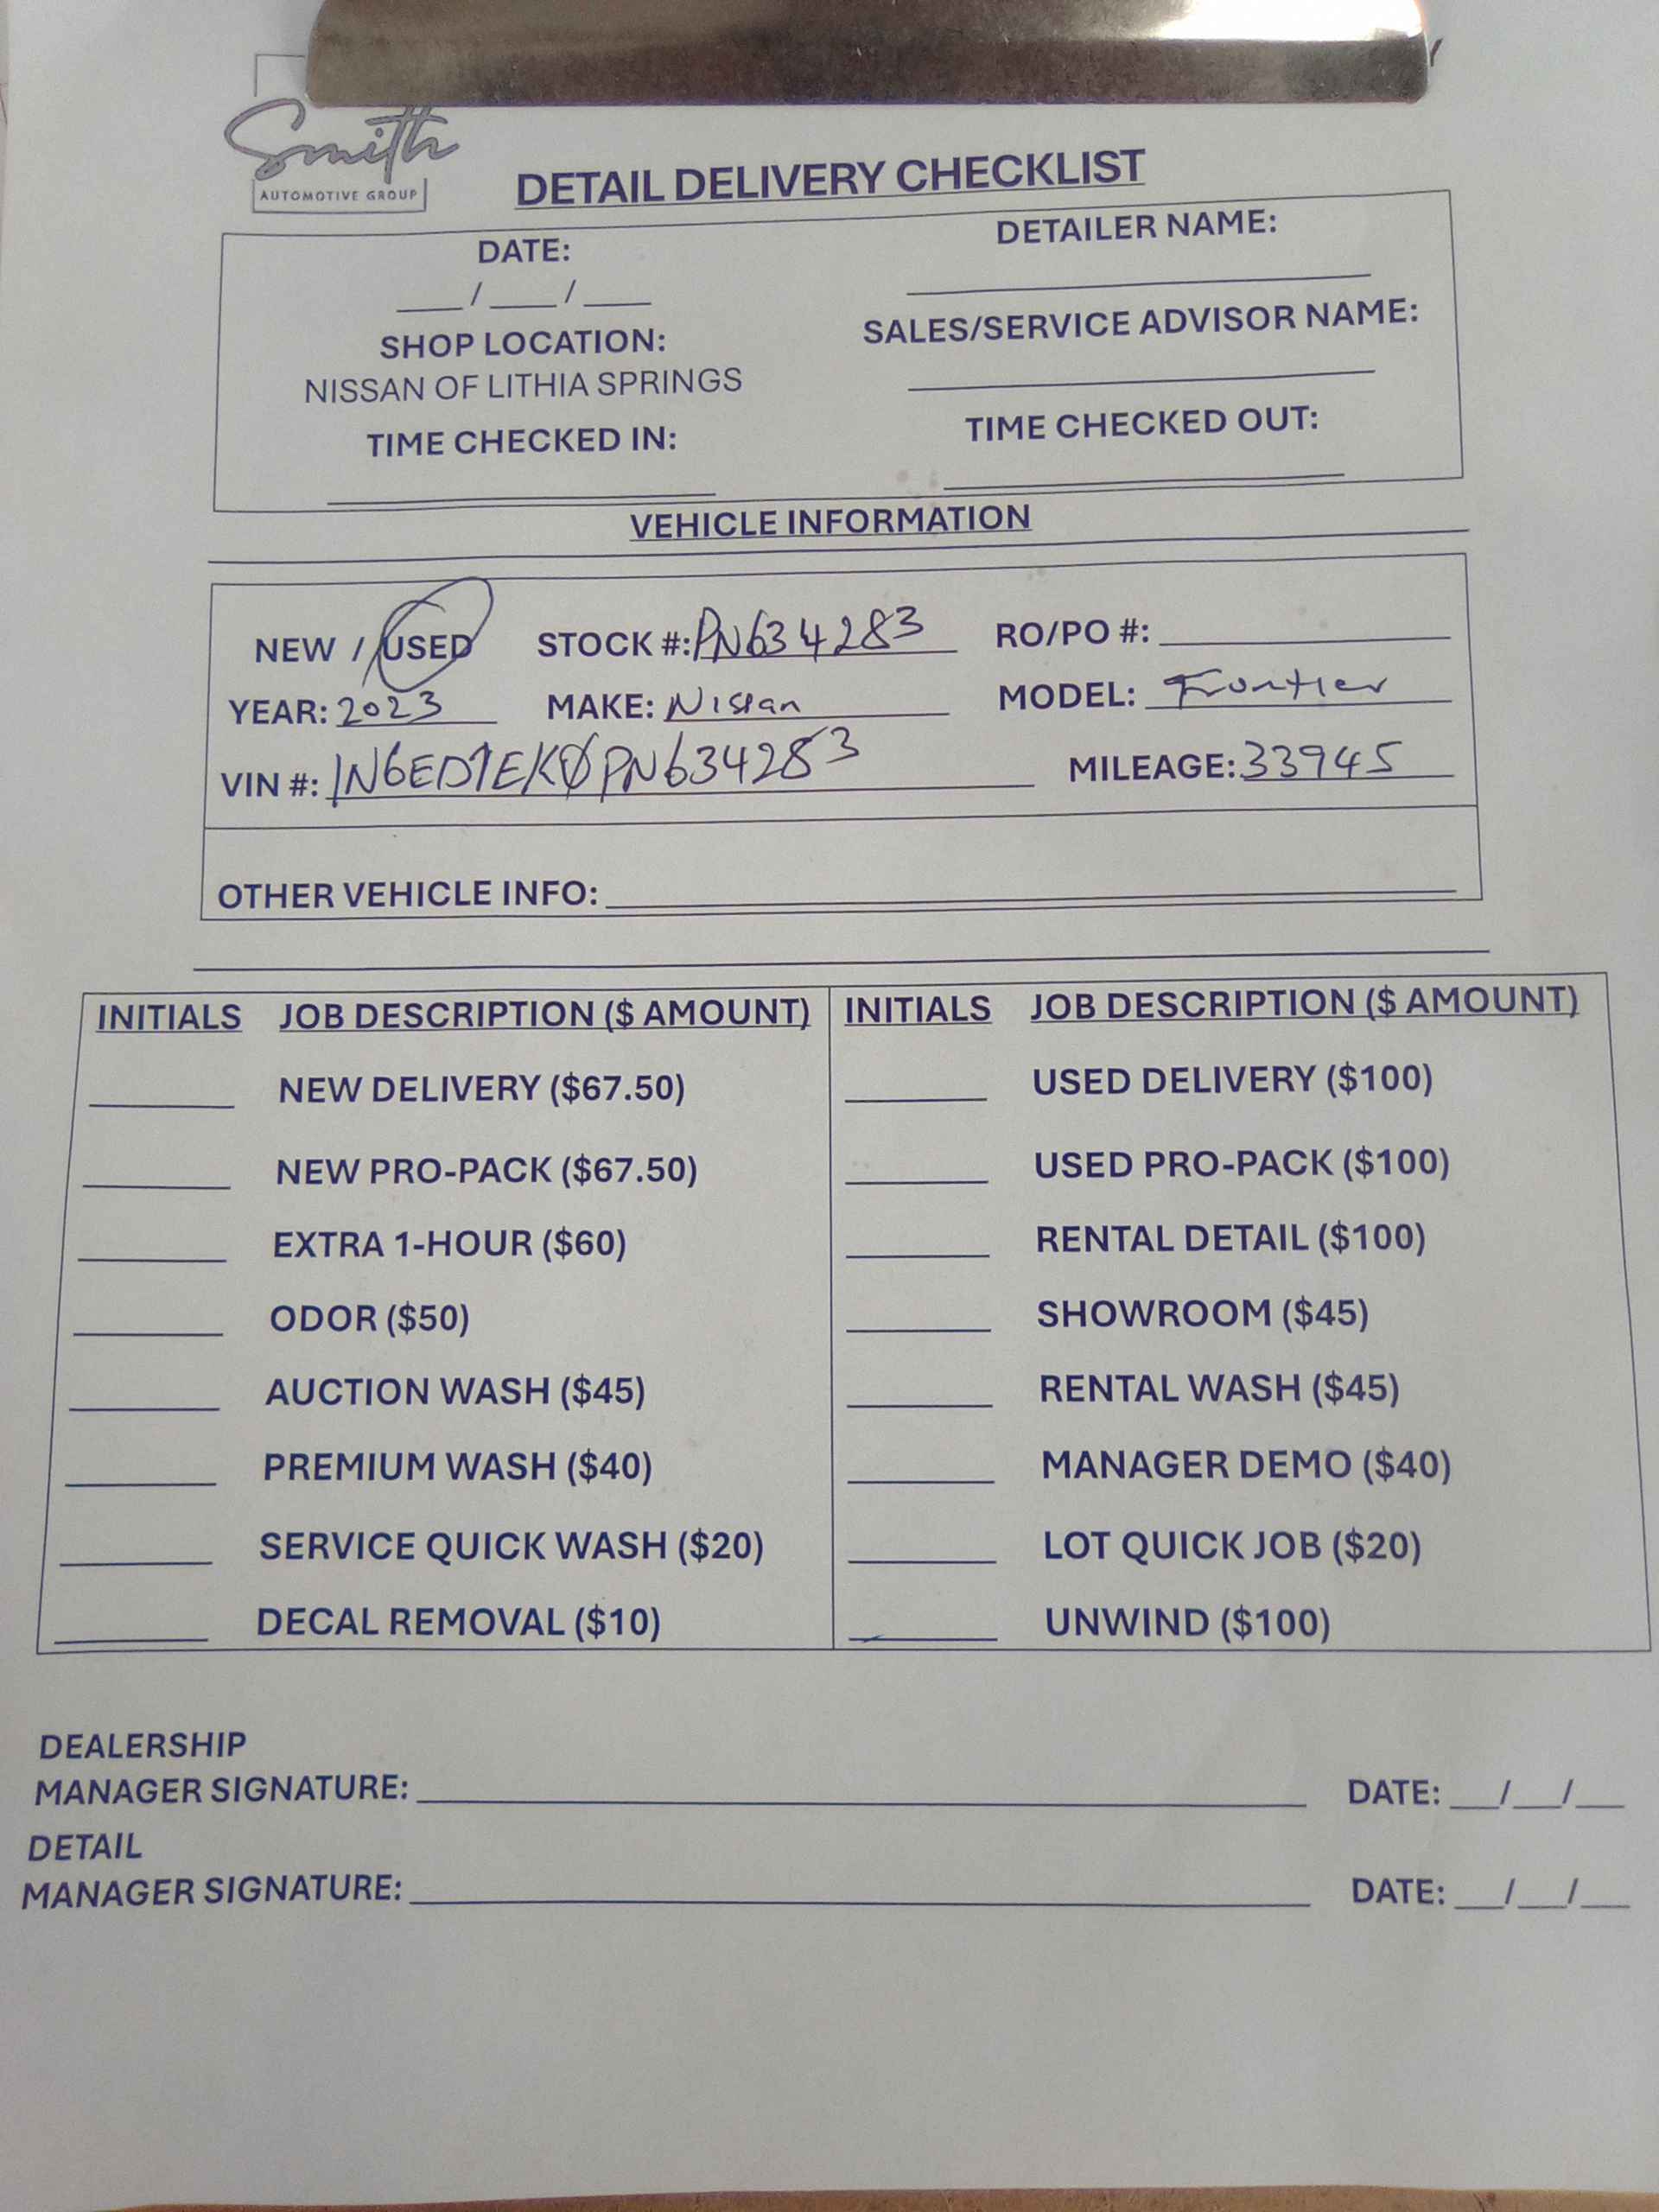 Smith
AUTOMOTIVE GROUP
DETAIL DELIVERY CHECKLIST
DATE:
___/___/___
DETAILER NAME:
SHOP LOCATION:
NISSAN OF LITHIA SPRINGS
SALES/SERVICE ADVISOR NAME:
TIME CHECKED IN:
TIME CHECKED OUT:
VEHICLE INFORMATION
NEW / USED STOCK #: PN634283 RO/PO #:
YEAR: 2023 MAKE: Nissan MODEL: Frontier
VIN #: 1N6ED1EK0PN634283 MILEAGE: 33945
OTHER VEHICLE INFO:
INITIALS JOB DESCRIPTION ($ AMOUNT) INITIALS JOB DESCRIPTION ($ AMOUNT)
NEW DELIVERY ($67.50) USED DELIVERY ($100)
NEW PRO-PACK ($67.50) USED PRO-PACK ($100)
EXTRA 1-HOUR ($60) RENTAL DETAIL ($100)
ODOR ($50) SHOWROOM ($45)
AUCTION WASH ($45) RENTAL WASH ($45)
PREMIUM WASH ($40) MANAGER DEMO ($40)
SERVICE QUICK WASH ($20) LOT QUICK JOB ($20)
DECAL REMOVAL ($10) UNWIND ($100)
DEALERSHIP
MANAGER SIGNATURE: DATE: __/__/__
DETAIL
MANAGER SIGNATURE: DATE: __/__/__